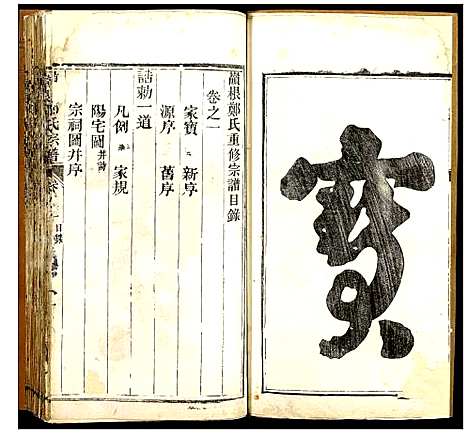 寶
嶺根鄭氏重修宗譜目錄
卷之一
家寶 新序
源序 舊序
誥勅一道
凡例 家規
陽宅圖并詩
宗祠圖并序
氏宗譜
目錄